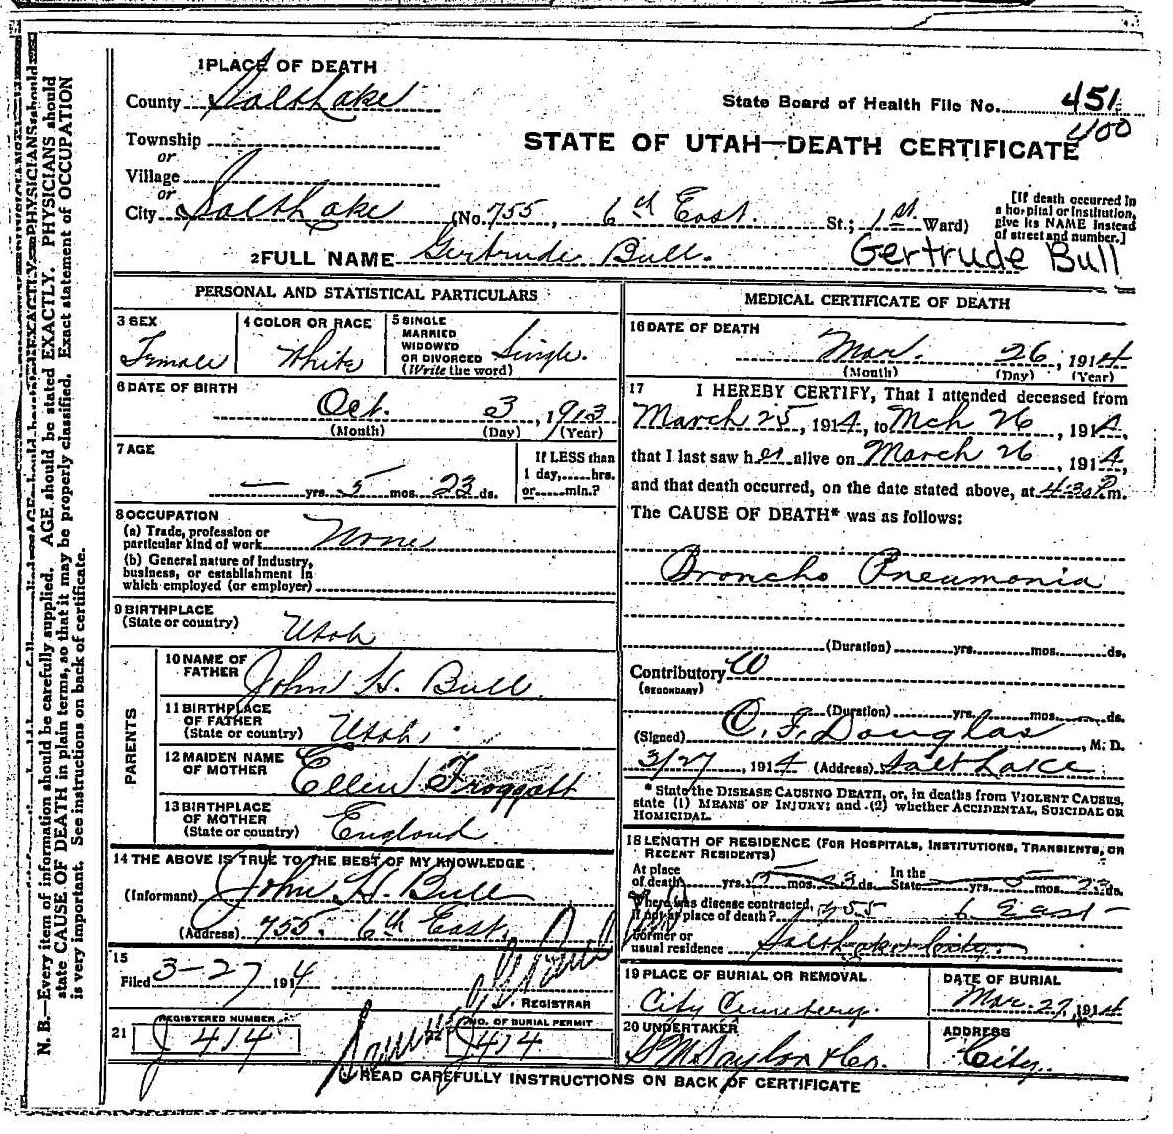 1 PLACE OF DEATH
County Salt Lake
State Board of Health File No. 451
400
Township
or
Village
or
STATE OF UTAH—DEATH CERTIFICATE
City Salt Lake (No. 755, 6th East. St.; 1st Ward)
[If death occurred in a hospital or institution, give its NAME instead of street and number.]
2 FULL NAME Gertrude Bull.
Gertrude Bull
PERSONAL AND STATISTICAL PARTICULARS
3 SEX
Female
4 COLOR OR RACE
White
5 SINGLE MARRIED WIDOWED OR DIVORCED
(Write the word)
Single.
6 DATE OF BIRTH
Oct. 3, 1913
(Month) (Day) (Year)
7 AGE
— yrs. 5 mos. 23 ds.
If LESS than
1 day,......hrs.
or......min.?
8 OCCUPATION
(a) Trade, profession or
particular kind of work None
(b) General nature of industry,
business, or establishment in
which employed (or employer)
9 BIRTHPLACE
(State or country)
Utah
PARENTS
10 NAME OF FATHER
John H. Bull.
11 BIRTHPLACE OF FATHER
(State or country)
Utah.
12 MAIDEN NAME OF MOTHER
Ellen Froggatt
13 BIRTHPLACE OF MOTHER
(State or country)
England
14 THE ABOVE IS TRUE TO THE BEST OF MY KNOWLEDGE
(Informant) John H. Bull
(Address) 755. 6th East.
15
Filed 3-27 1914
REGISTRAR
21
REGISTERED NUMBER
J 414
22
NO. OF BURIAL PERMIT
J 414
MEDICAL CERTIFICATE OF DEATH
16 DATE OF DEATH
Mar. 26, 1914
(Month) (Day) (Year)
17 I HEREBY CERTIFY, That I attended deceased from
March 25, 1914, to Mch 26, 1914,
that I last saw her alive on March 26, 1914,
and that death occurred, on the date stated above, at 4:30 P.m.
The CAUSE OF DEATH* was as follows:
Broncho Pneumonia
(Duration) yrs. mos. ds.
Contributory
(SECONDARY)
(Duration) yrs. mos. ds.
(Signed) C. F. Douglas, M. D.
3/27, 1914 (Address) Salt Lake
* State the DISEASE CAUSING DEATH, or, in deaths from VIOLENT CAUSES,
state (1) MEANS OF INJURY; and (2) whether ACCIDENTAL, SUICIDAL OR
HOMICIDAL.
18 LENGTH OF RESIDENCE (FOR HOSPITALS, INSTITUTIONS, TRANSIENTS, OR
RECENT RESIDENTS)
At place
of death yrs. 5 mos. 23 ds. In the State yrs. 5 mos. 23 ds.
Where was disease contracted,
if not at place of death? 755 6. East
Former or
usual residence Salt Lake City.
19 PLACE OF BURIAL OR REMOVAL
City Cemetery.
DATE OF BURIAL
Mar. 27, 1914
20 UNDERTAKER
S M Taylor & Co.
ADDRESS
City.
READ CAREFULLY INSTRUCTIONS ON BACK OF CERTIFICATE
N. B.—Every item of information should be carefully supplied. AGE should be stated EXACTLY. PHYSICIANS should
state CAUSE OF DEATH in plain terms, so that it may be properly classified. Exact statement of OCCUPATION
is very important. See instructions on back of certificate.